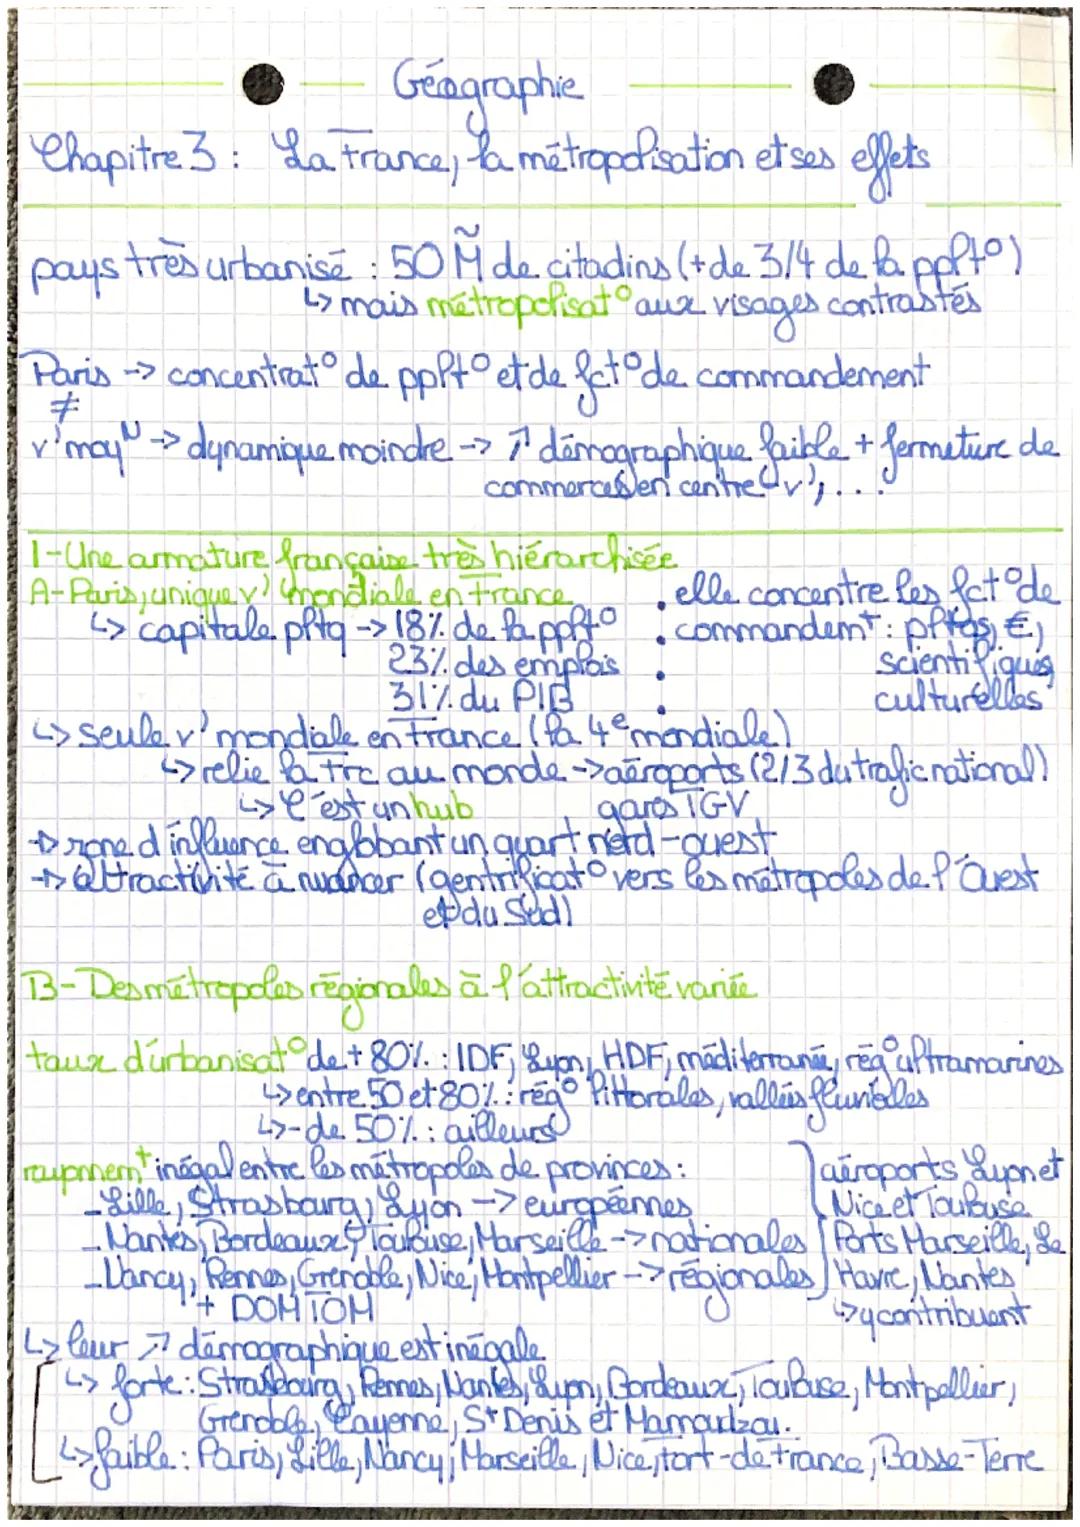 Géographie
Chapitre 3 : La France, la métropolisation et ses effets
pays très urbanisé : 50 M̃ de citadins (+ de 3/4 de la pplt°)
↳ mais métropolisat° aux visages contrastés
Paris → concentrat° de pplt° et de fct° de commandement
≠
v' moyN → dynamique moindre → ↗ démographique faible + fermeture de
commerces en centre-v', ...
1-Une armature française très hiérarchisée
A-Paris, unique v' mondiale en France
↳ capitale pltq → 18% de la pplt°
23% des emplois
31% du PIB
• elle concentre les fct° de
• commandemt : pltqs, €,
• scientifiques
• culturelles
↳ seule v' mondiale en France (la 4e mondiale)
↳ relie la Frc au monde → aéroports (2/3 du trafic national)
↳ C'est un hub gares TGV
→ zone d'influence englobant un quart nord-ouest
→ attractivité à nuancer (gentrificat° vers les métropoles de l'Ouest
et du Sud)
B- Des métropoles régionales à l'attractivité variée
taux d'urbanisat° de + 80% : IDF, Lyon, HDF, méditerranée, rég° ultramarines
↳ entre 50 et 80% : rég° littorales, vallées fluviales
↳ - de 50% : ailleurs
rayonnemt inégal entre les métropoles de provinces :
- Lille, Strasbourg, Lyon → européennes
- Nantes, Bordeaux, Toulouse, Marseille → nationales
- Nancy, Rennes, Grenoble, Nice, Montpellier → régionales
+ DOM TOM
aéroports Lyon et
Nice et Toulouse
Ports Marseille, Le
Havre, Nantes
↳ y contribuent
↳ leur ↗ démographique est inégale
↳ forte : Strasbourg, Rennes, Nantes, Lyon, Bordeaux, Toulouse, Montpellier,
Grenoble, Cayenne, St Denis et Mamoudzou.
↳ faible : Paris, Lille, Nancy, Marseille, Nice, Fort-de-France, Basse-Terre